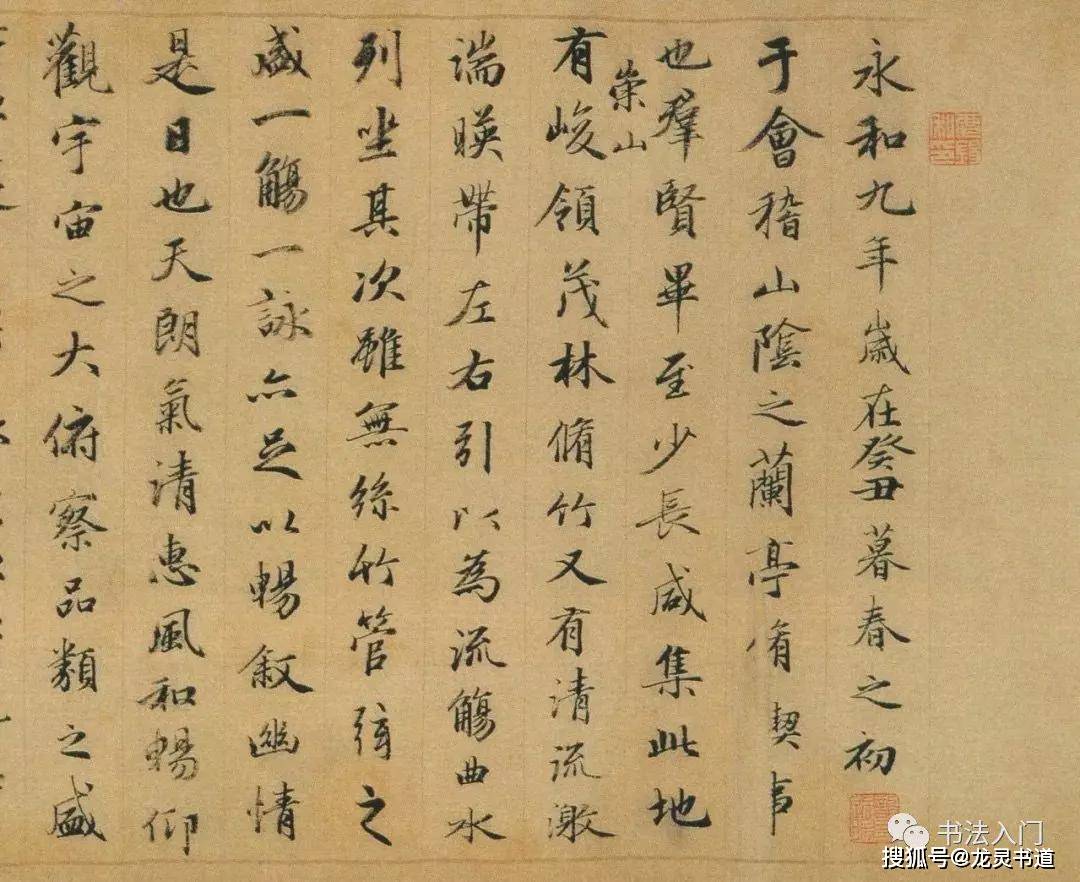 永和九年歲在癸丑暮春之初
于會稽山陰之蘭亭脩禊事
也羣賢畢至少長咸集此地
崇山
有峻領茂林脩竹又有清流激
湍暎帶左右引以為流觴曲水
列坐其次雖無絲竹管弦之
盛一觴一詠亦足以暢敘幽情
是日也天朗氣清惠風和暢仰
觀宇宙之大俯察品類之盛
书法入门
搜狐号@龙灵书道